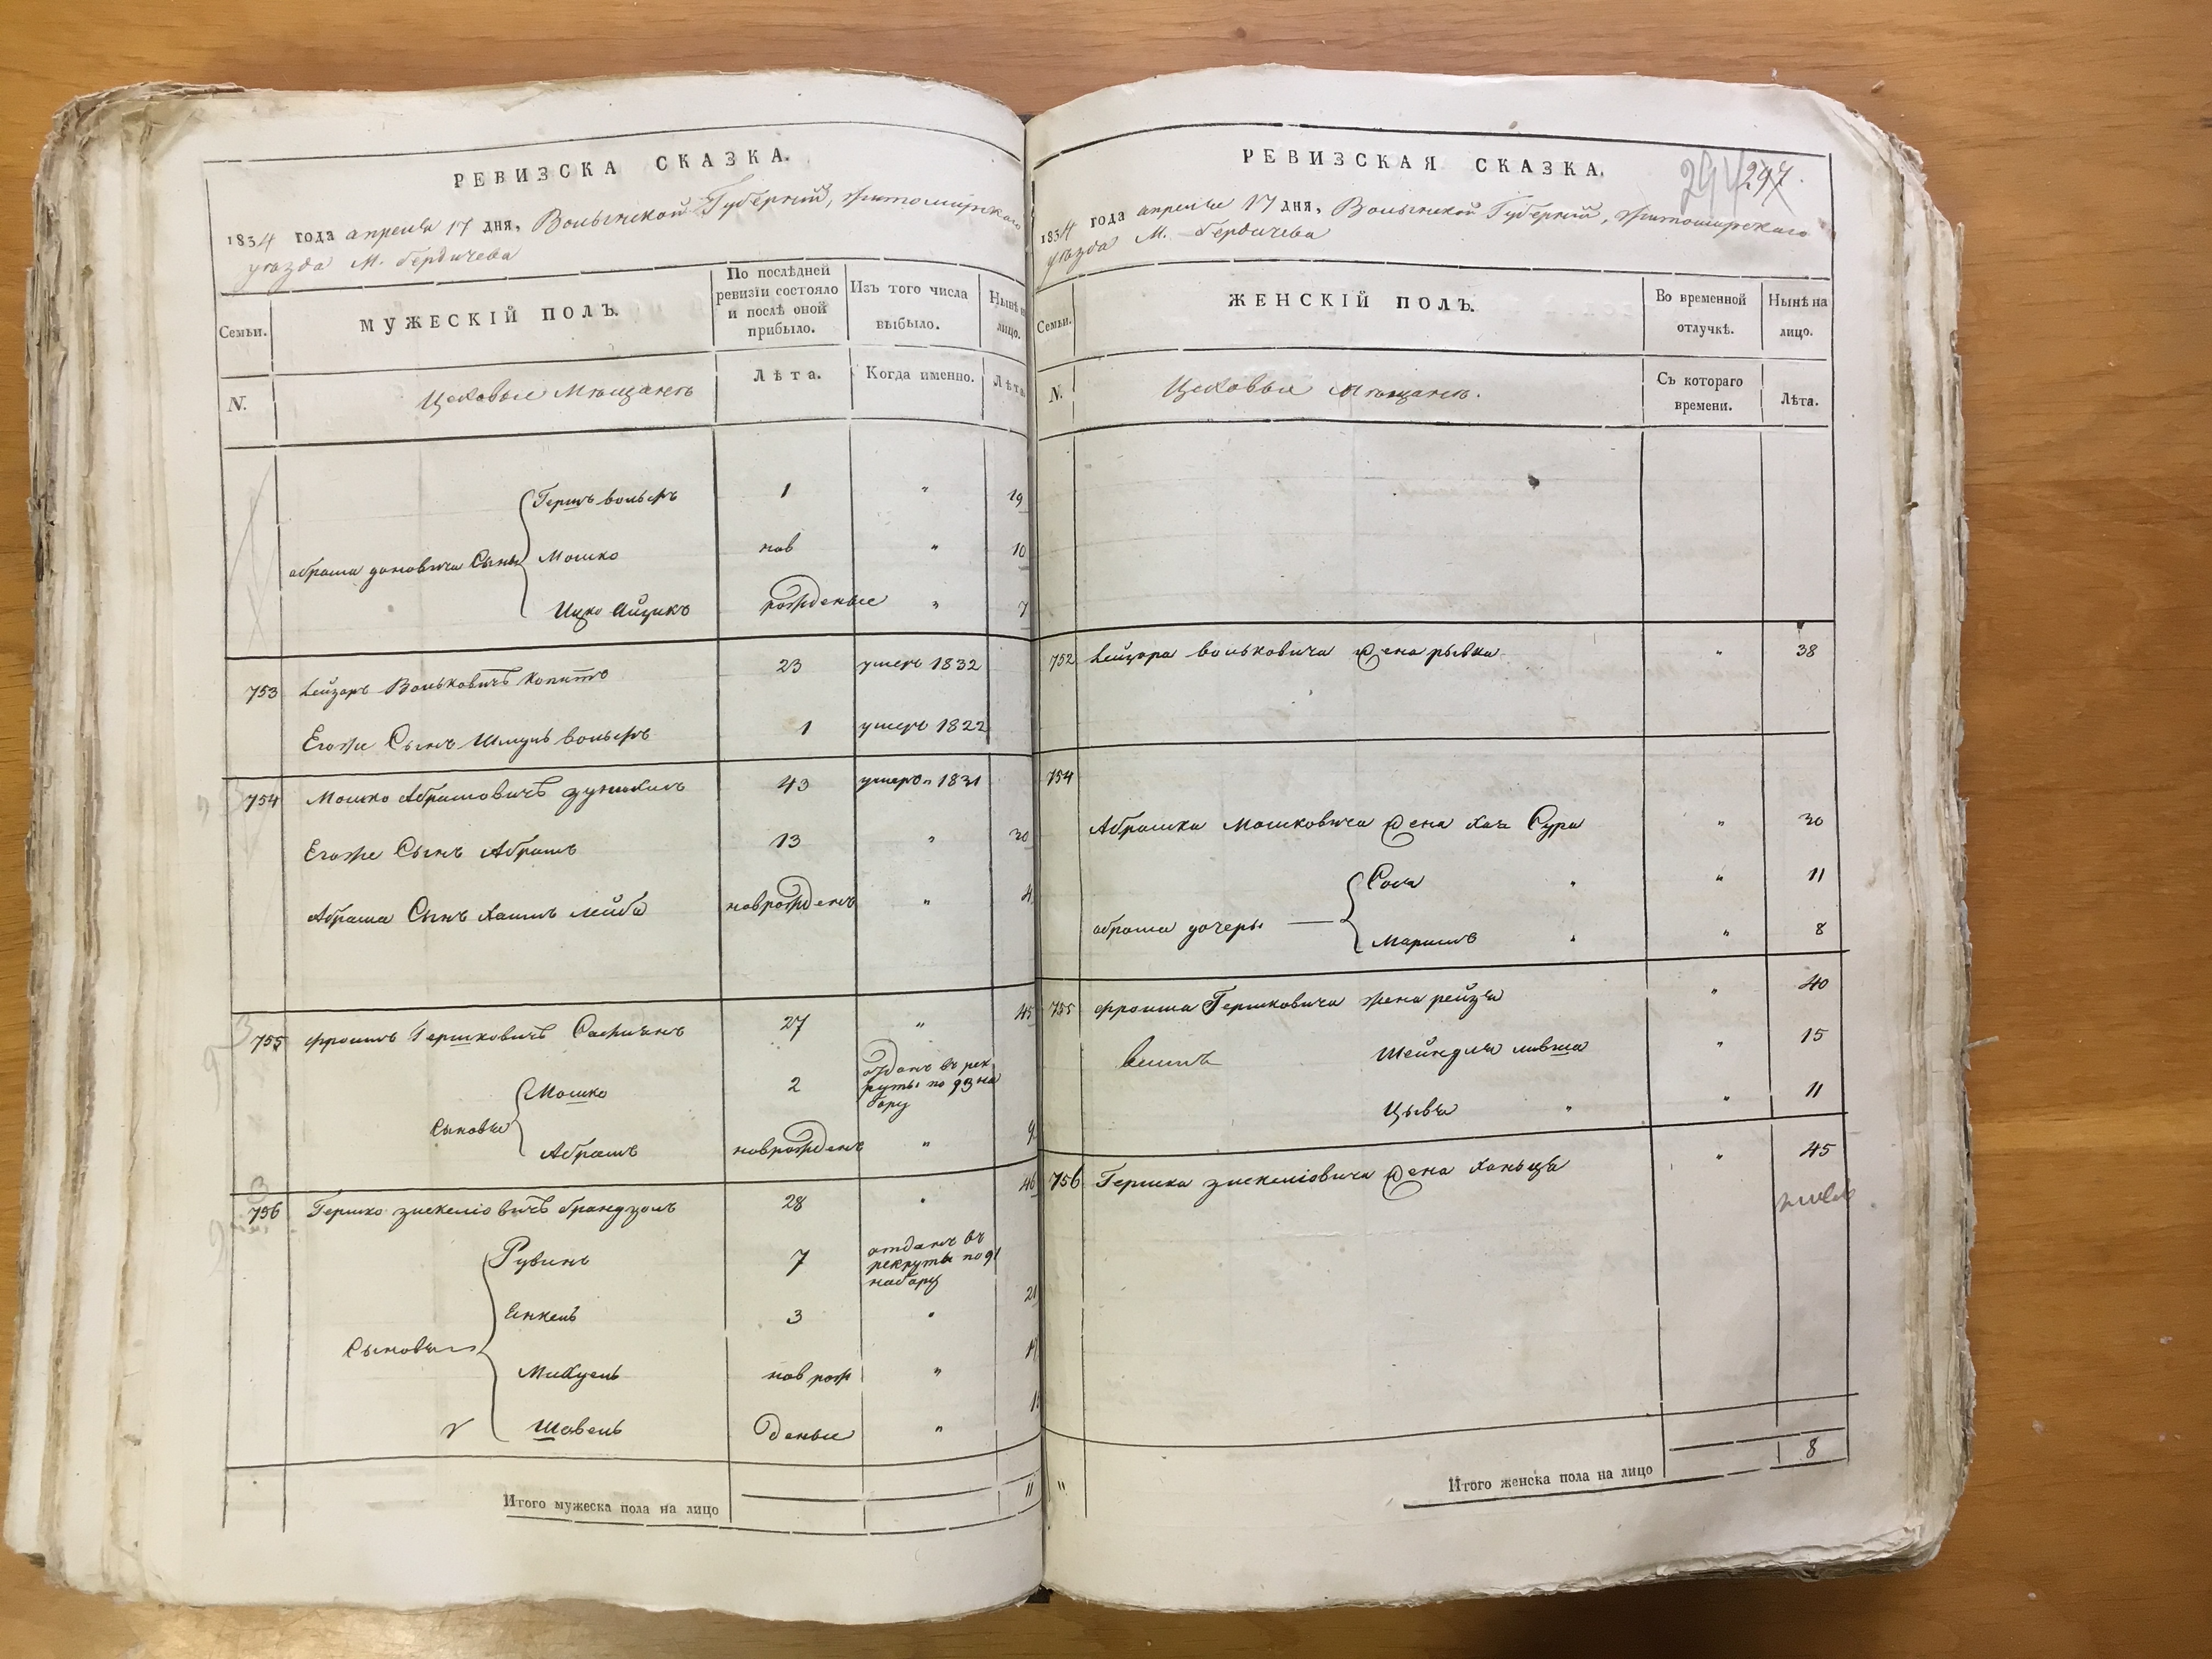 РЕВИЗСКА СКАЗКА.
1834 года апреля 17 дня, Волынской Губерніи, Житомирскаго
уѣзда М. Бердичева
Семьи.
МУЖЕСКІЙ ПОЛЪ.
По послѣдней
ревизіи состояло
и послѣ оной
прибыло.
Изъ того числа
выбыло.
Нынѣ н
лицо.
N.
Цеховые Мѣщанѣ
Лѣта.
Когда именно.
Лѣта
Гершъ вольфъ 1 " 19
нов " 10
абрама Сыны Мошко
Ицко Айзикъ рожденые " 7
753 Лейзоръ Вольковичъ Копитъ 23 умеръ 1832
Егоже Сынъ Шмуль вольфъ 1 умеръ 1822
754 Мошко Абрамовичъ 43 умеръ 1831
Егоже Сынъ Абрамъ 13 " 30
Абрама Сынъ Хаимъ лейба новрожденъ " 4
755 фроимъ Гершковичъ 27 " 45
Мошко 2 отданъ въ рек
руты по 93 на
бору
Сыновья
Абрамъ новрожденъ " 9
756 Гершко 28 " 46
Рувинъ 7 отданъ въ
рекруты по 91
набору
Енкель 3 " 21
Сыновья
Михуель нов рож "
Шовель деные "
Итого мужеска пола на лицо 11
РЕВИЗСКАЯ СКАЗКА.
297.
1834 года апреля 17 дня, Волынской Губерніи, Житомирскаго
уѣзда М. Бердичева
Семьи.
ЖЕНСКІЙ ПОЛЪ.
Во временной
отлучкѣ.
Нынѣ на
лицо.
N.
Цеховые Мѣщанѣ.
Съ котораго
времени.
Лѣта.
752 Лейзора вольковича жена рывка " 38
754
Абрашка Мошковича жена хая Сура " 30
Сося " " 11
абрама дочеры
Марыямъ " " 8
755 фроима Гершковича жена рейзя " 40
Шейндля ливша " 15
Цывья " " 11
756 Гершка жена ханьця " 45
" Итого женска пола на лицо 8